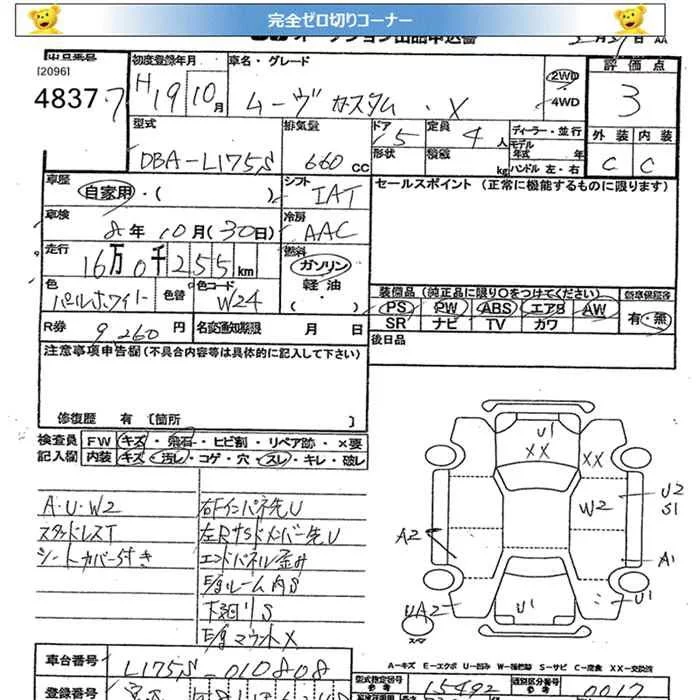 完全ゼロ切りコーナー
オークション出品申込書
出品番号 初度登録年月 車名・グレード 評価点
[2096]
4837 7 H19 10月 ムーヴ カスタム ・ X 2WD 4WD 3
型式 排気量 ドア 定員 ディーラー・並行 外装 内装
DBA-L175S 660cc 5 4人 モデル年式 年 C C
形状 積載 kg ハンドル 左・右
車歴 シフト セールスポイント (正常に機能するものに限ります)
自家用・( ) IAT
車検 冷房
8年 10月(30日) AAC
走行 燃料
16万0千255km ガソリン 軽油 ( )
色 色替 色コード
パールホワイト W24
装備品 (純正品に限り○をつけてください) 新車保証書
PS PW ABS エアB AW 有・無
SR ナビ TV カワ
R券 9260円 名変通知期限 月 日
後日品
注意事項申告欄(不具合内容等は具体的に記入して下さい)
修復歴 有 〔箇所 〕
検査員 FW キズ・飛石・ヒビ割・リペア跡・×要
記入欄 内装 キズ・汚レ・コゲ・穴・スレ・キレ・破レ
A・U・W2
スタッドレスT
シートカバー付き
右Fインパネ先U
左Rサイドメンバー先U
エンドパネル歪み
E/gルーム内S
下廻りS
E/gマウントX
U1
XX XX
W2 U2
S1
A2 A1
UA2 U1 U1
スペア
A-キズ E-エクボ U-凹み W-補修跡 S-サビ C-腐食 XX-交換済
車台番号 L175S-010808
型式指定番号 参考 15492 類別区分番号 参考 0017
登録番号